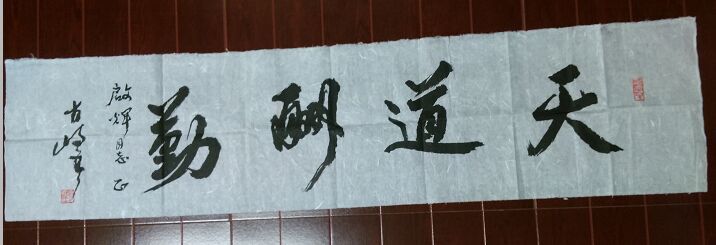 天道酬勤
啟輝同志正